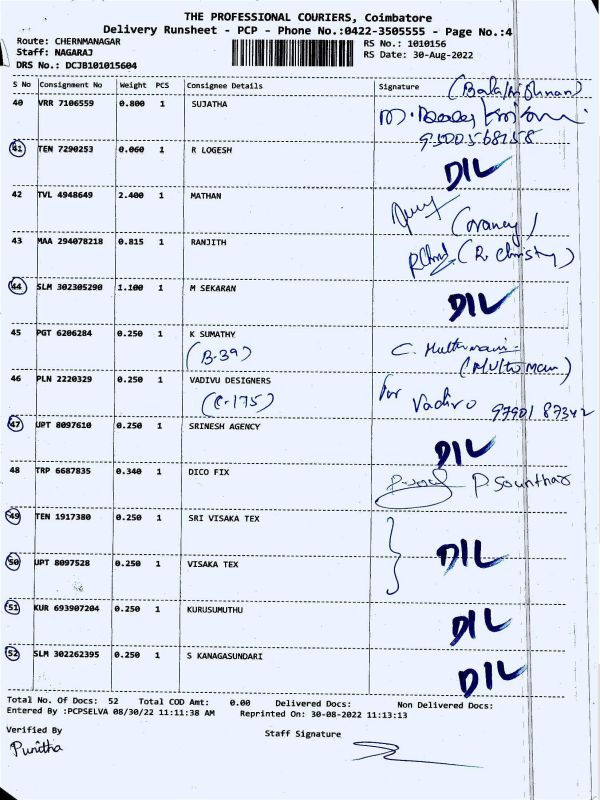 THE PROFESSIONAL COURIERS, Coimbatore
Delivery Runsheet - PCP - Phone No.:0422-3505555 - Page No.:4
Route: CHERNMANAGAR
Staff: NAGARAJ
DRS No.: DCJB101015604
RS No.: 1010156
RS Date: 30-Aug-2022
S No Consignment No Weight PCS Consignee Details Signature
(Balakrishnan)
40 VRR 7106559 0.800 1 SUJATHA
9500568258
41 TEN 7290253 0.060 1 R LOGESH
DIL
42 TVL 4948649 2.400 1 MATHAN
43 MAA 294078218 0.815 1 RANJITH
(R. Christy)
44 SLM 302305290 1.100 1 M SEKARAN
DIL
45 PGT 6206284 0.250 1 K SUMATHY
(B-39)
46 PLN 2220329 0.250 1 VADIVU DESIGNERS
(C-175)
for Vadivu 97901 87342
47 UPT 8097610 0.250 1 SRINESH AGENCY
DIL
48 TRP 6687835 0.340 1 DICO FIX
49 TEN 1917380 0.250 1 SRI VISAKA TEX
50 UPT 8097528 0.250 1 VISAKA TEX
DIL
51 KUR 693907204 0.250 1 KURUSUMUTHU
DIL
52 SLM 302262395 0.250 1 S KANAGASUNDARI
DIL
Total No. Of Docs: 52 Total COD Amt: 0.00 Delivered Docs: Non Delivered Docs:
Entered By :PCPSELVA 08/30/22 11:11:38 AM Reprinted On: 30-08-2022 11:13:13
Verified By
Punitha
Staff Signature